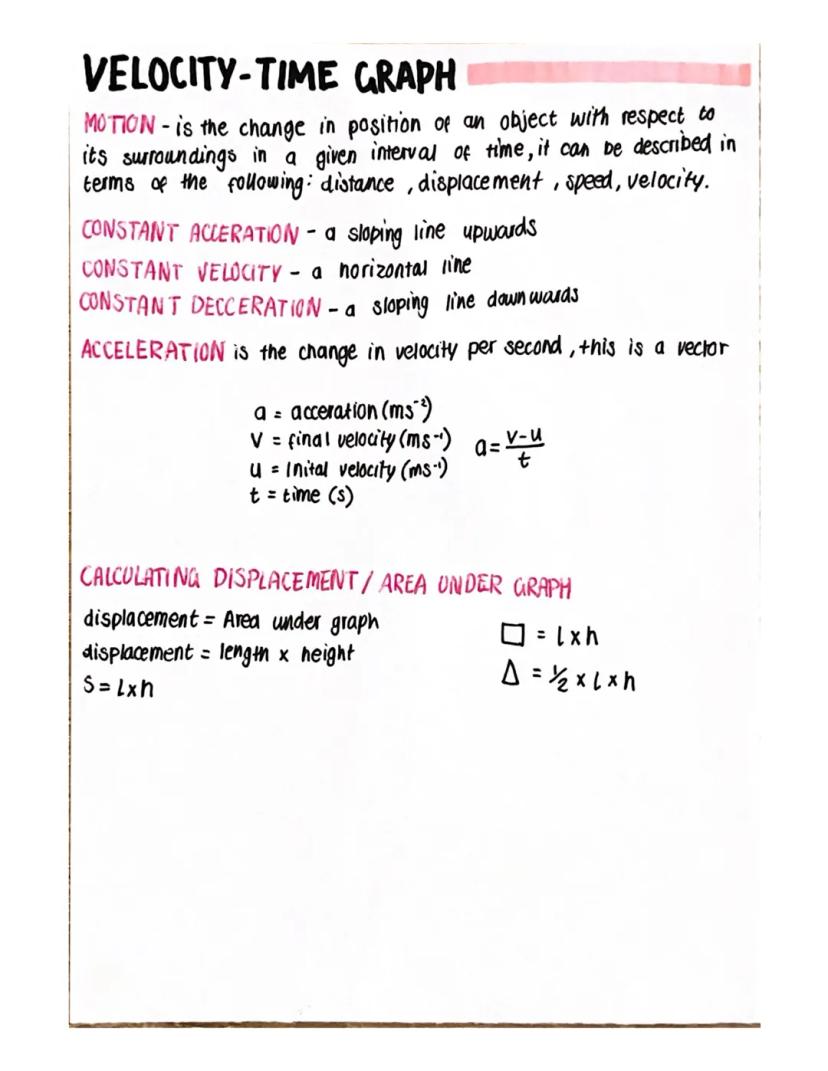 VELOCITY-TIME GRAPH
MOTION - is the change in position of an object with respect to
its surroundings in a given interval of time, it can be described in
terms of the following: distance, displacement, speed, velocity.
CONSTANT ACCERATION - a sloping line upwards
CONSTANT VELOCITY - a horizontal line
CONSTANT DECCERATION - a sloping line downwards
ACCELERATION is the change in velocity per second, this is a vector
a = acceration (ms⁻²)
V = final velocity (ms⁻¹)
u = Inital velocity (ms⁻¹)
t = time (s)
a = v-u/t
CALCULATING DISPLACEMENT / AREA UNDER GRAPH
displacement = Area under graph
displacement = length x height
S = L x h
□ = l x h
Δ = 1/2 x l x h